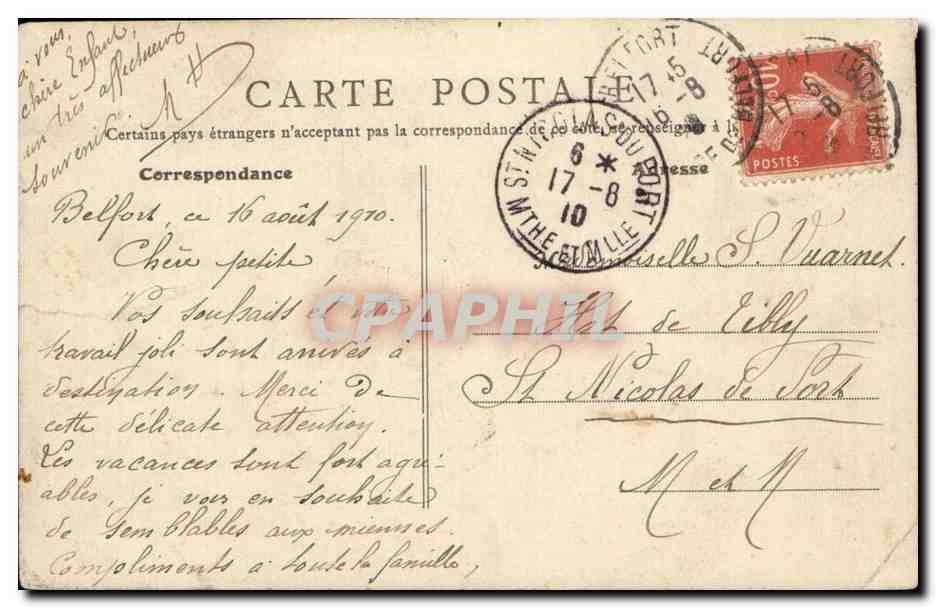 CARTE POSTALE
Certains pays étrangers n'acceptant pas la correspondance de ce côté, se renseigner à la
Correspondance
Belfort, ce 16 août 1910.
Chère petite,
Vos souhaits et votre
travail joli sont arrivés à
destination. Merci de
cette délicate attention.
Les vacances sont fort agré-
ables, je vous en souhaite
de semblables aux miennes.
Compliments à toute la famille,
à vous,
chère Enfant,
un très affectueux
souvenir. M H
Adresse
Mademoiselle S. Vuarnet.
de Tilly
St Nicolas de Port
M et M
ST NICOLAS-DU-PORT
6 *
17 -8
10
MTHE ET MLLE
BELFORT
17 45
16 -8
BELFORT
POSTES
10
CPAPHIL